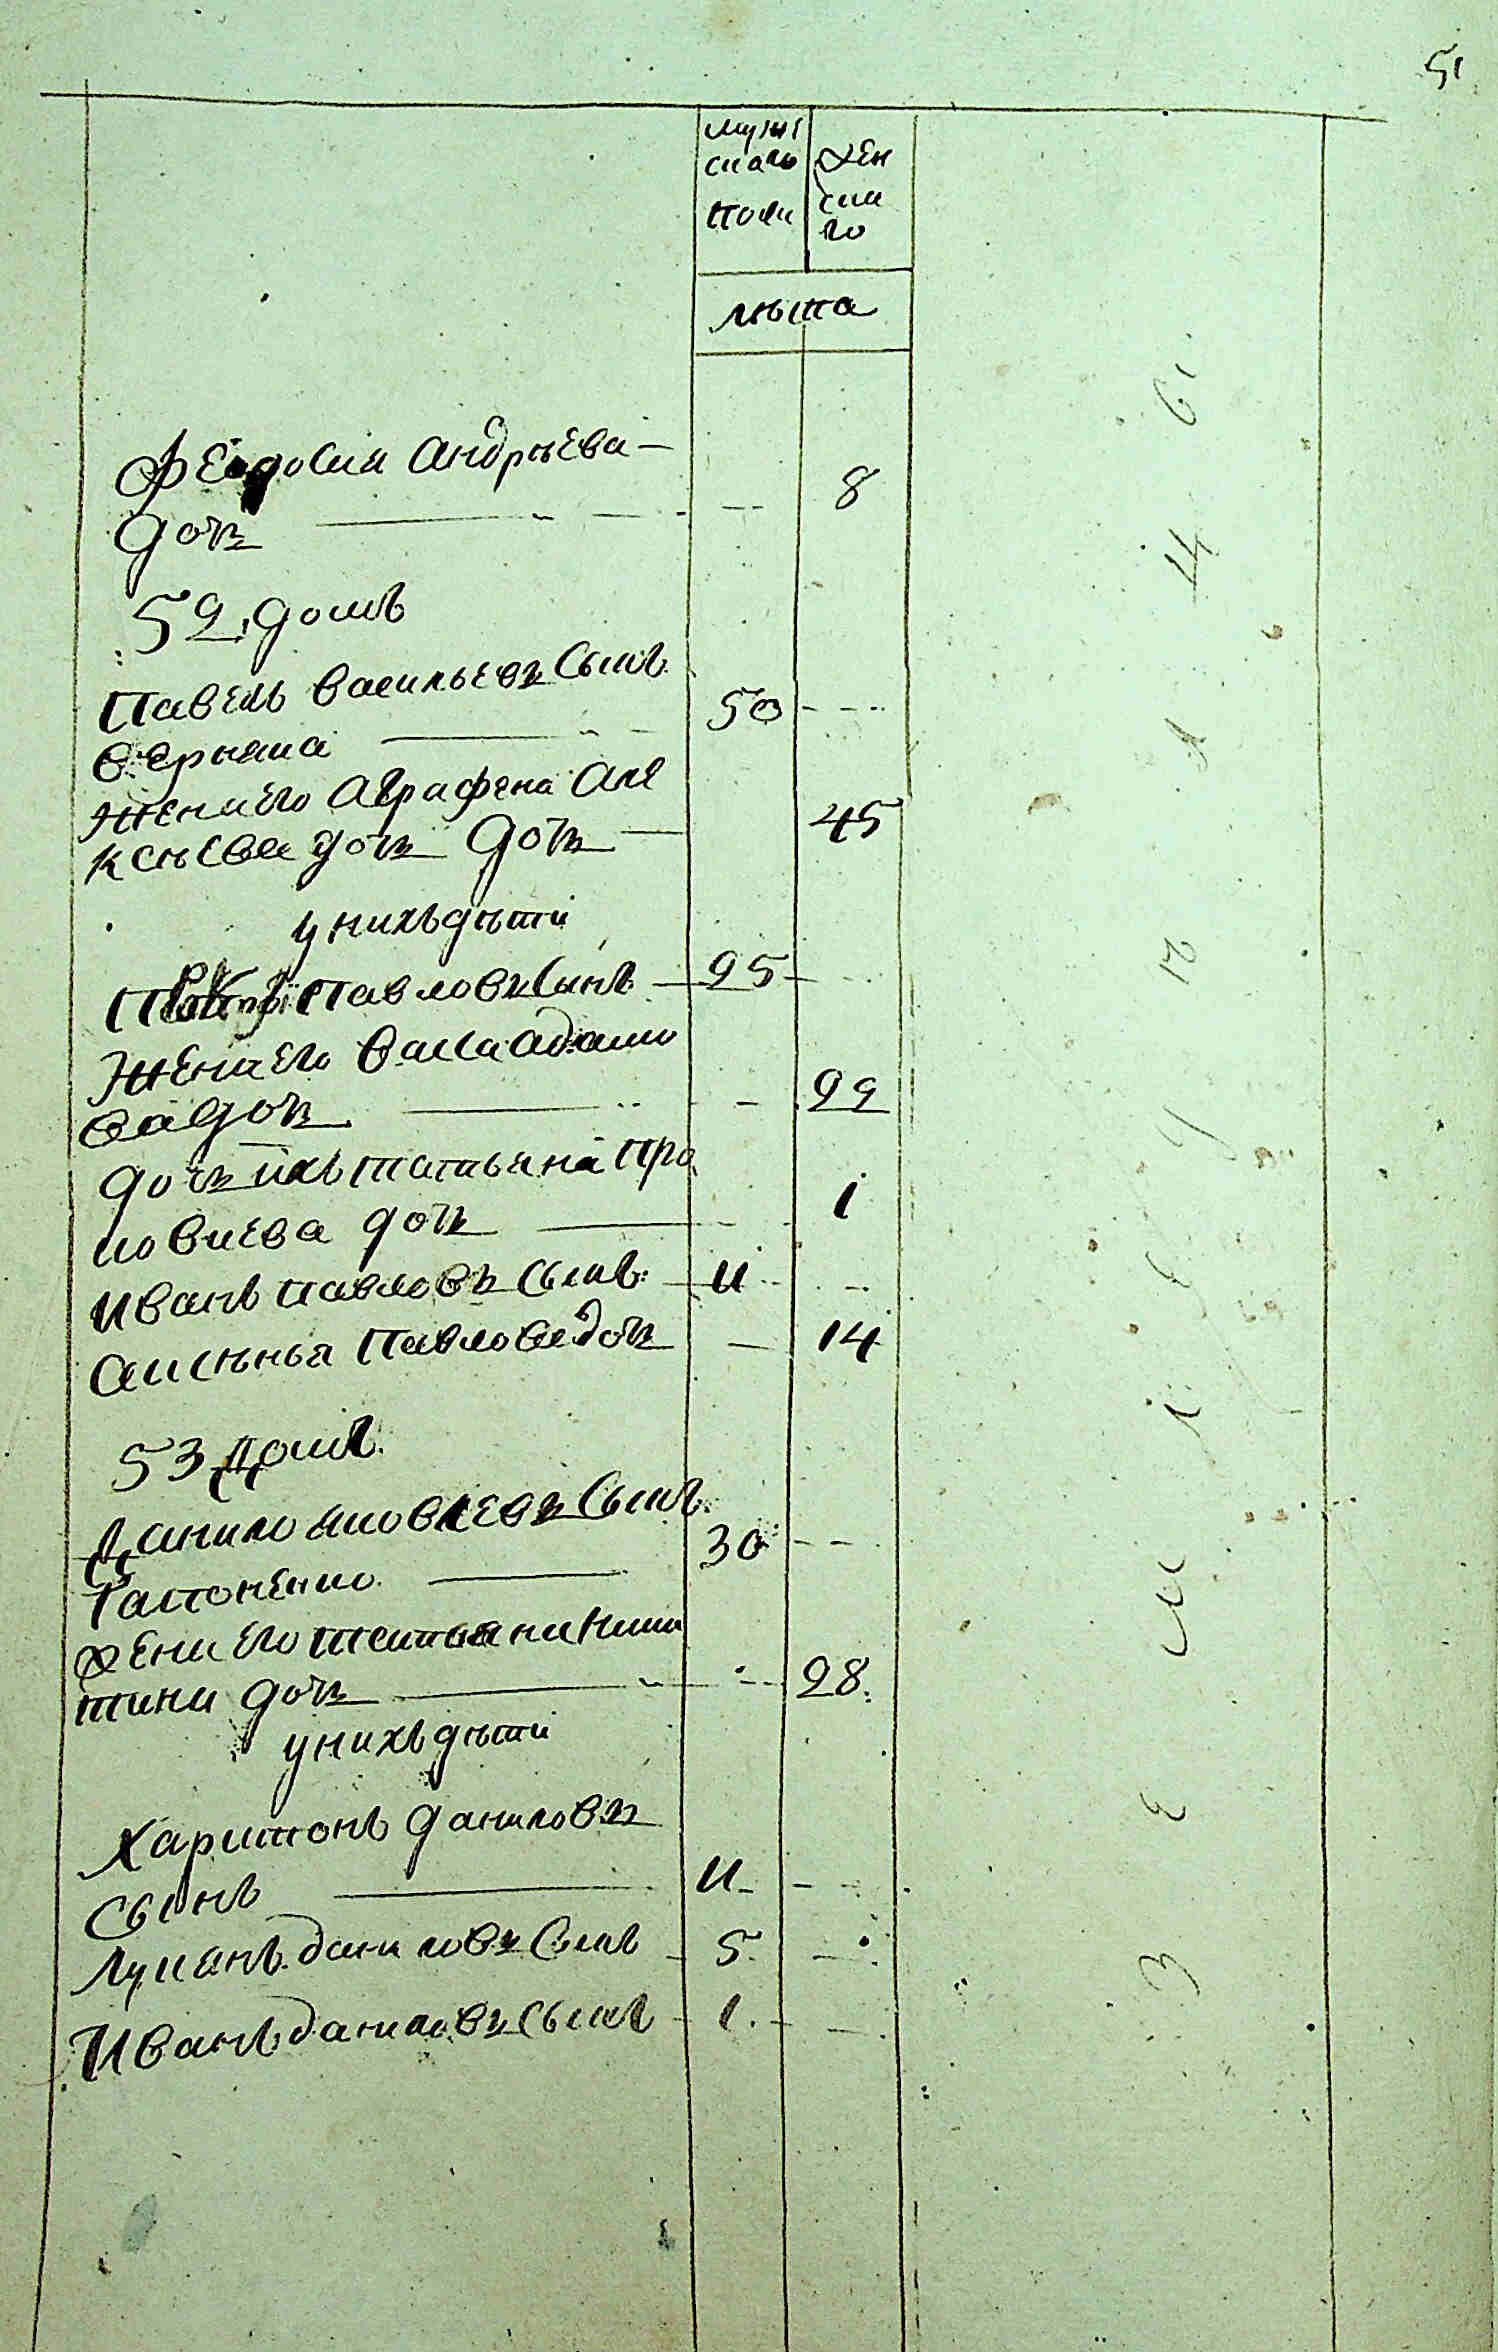 51
мужскаго пола
женскаго
лѣта
Феодосия Андрѣева
дочь 8
52 домъ
Павелъ васильевъ сынъ 50
Жена его Аграфена Але
ксѣева дочь дочь 45
у нихъ дѣти
Павловъ сынъ 25
Жена его васса адамо
ва дочь 22
дочь ихъ татьяна про
кофиева дочь 1
Иванъ павловъ сынъ 11
Аксѣнья Павлова дочь 14
53 домъ
Данило яковлевъ сынъ 30
Гапоненко
жена его татьяна ники
тина дочь 28
у нихъ дѣти
Харитонъ даниловъ
сынъ 11
Лукянъ даниловъ сынъ 5
Иванъ даниловъ сынъ 1